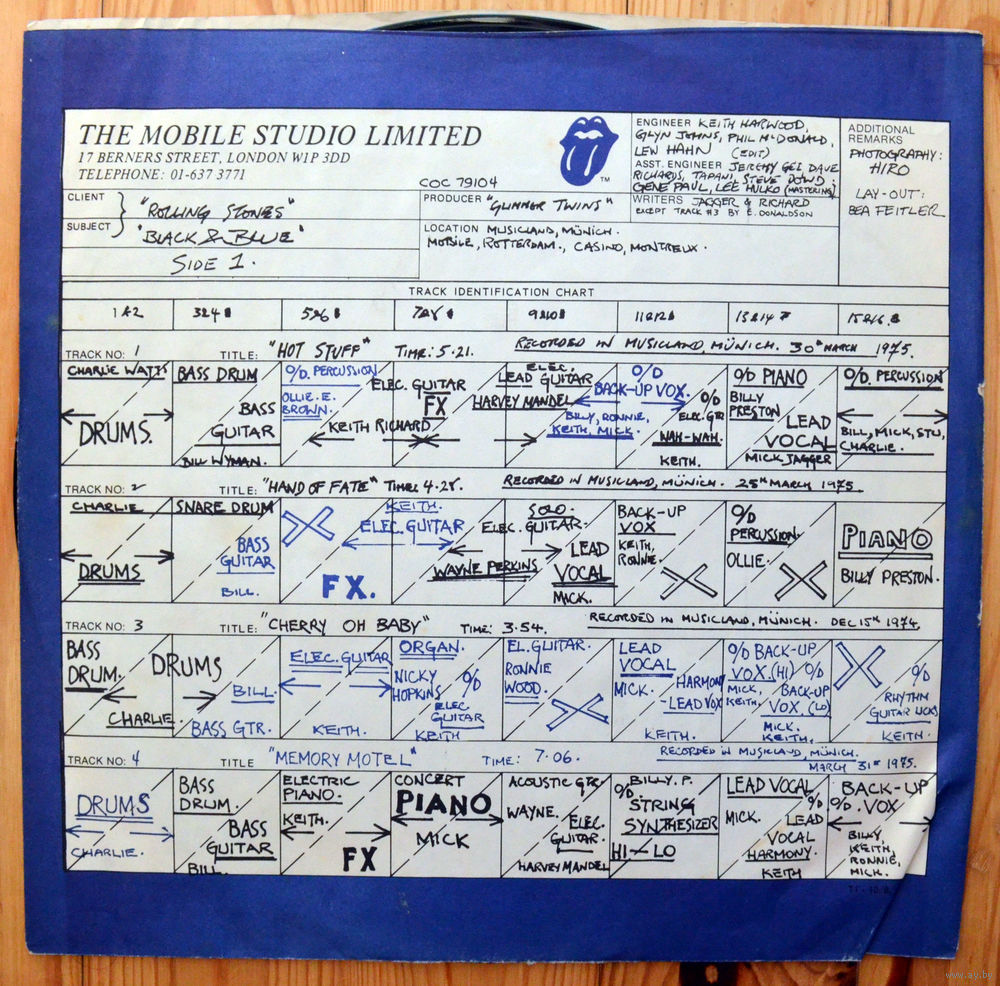 THE MOBILE STUDIO LIMITED
17 BERNERS STREET, LONDON W1P 3DD
TELEPHONE: 01-637 3771
COC 79104
TM
ENGINEER KEITH HARWOOD,
GLYN JOHNS, PHIL McDONALD,
LEW HAHN (EDIT)
ASST. ENGINEER JEREMY GEE DAVE
RICHARDS, TAPANI, STEVE DOWD,
GENE PAUL, LEE HULKO (MASTERING)
WRITERS JAGGER & RICHARD
EXCEPT TRACK #3 BY E. DONALDSON
ADDITIONAL
REMARKS
PHOTOGRAPHY:
HIRO
LAY-OUT:
BEA FEITLER
CLIENT
"ROLLING STONES"
SUBJECT
"BLACK & BLUE"
SIDE 1.
PRODUCER "GLIMMER TWINS"
LOCATION MUSICLAND, MÜNICH.
MOBILE, ROTTERDAM., CASINO, MONTREUX.
TRACK IDENTIFICATION CHART
1&2 3&4 5&6 7&8 9&10 11&12 13&14 15&16
TRACK NO: 1 TITLE: "HOT STUFF" TIME: 5.21. RECORDED IN MUSICLAND, MÜNICH. 30th MARCH 1975.
CHARLIE WATTS
DRUMS.
BASS DRUM
BASS
GUITAR
BILL WYMAN.
O/D. PERCUSSION
OLLIE. E.
BROWN.
ELEC. GUITAR
FX
KEITH RICHARD
ELEC.
LEAD GUITAR
HARVEY MANDEL
O/D
BACK-UP VOX.
BILLY, RONNIE,
KEITH, MICK.
O/D
ELEC. GTR
WAH-WAH.
KEITH.
O/D PIANO
BILLY
PRESTON
LEAD
VOCAL
MICK JAGGER
O/D. PERCUSSION
BILL, MICK, STU,
CHARLIE.
TRACK NO: 2 TITLE: "HAND OF FATE" TIME: 4.28. RECORDED IN MUSICLAND, MÜNICH. 25th MARCH 1975.
CHARLIE
DRUMS
SNARE DRUM
BASS
GUITAR
BILL.
FX.
KEITH.
ELEC GUITAR
WAYNE PERKINS
SOLO.
ELEC. GUITAR.
LEAD
VOCAL
MICK.
BACK-UP
VOX
KEITH,
RONNIE.
O/D
PERCUSSION.
OLLIE.
PIANO
BILLY PRESTON.
TRACK NO: 3 TITLE: "CHERRY OH BABY" TIME: 3.54. RECORDED IN MUSICLAND, MÜNICH. DEC 15th 1974.
BASS
DRUM.
DRUMS
CHARLIE.
BILL.
BASS GTR.
ELEC. GUITAR
KEITH.
ORGAN.
NICKY
HOPKINS
O/D
ELEC
GUITAR
KEITH
EL. GUITAR.
RONNIE
WOOD.
LEAD
VOCAL
MICK.
HARMONY
-LEAD VOX
KEITH.
O/D BACK-UP
VOX. (HI) O/D
MICK, BACK-UP
KEITH. VOX. (LO)
MICK.
KEITH.
O/D
RHYTHM
GUITAR LICKS
KEITH.
TRACK NO: 4 TITLE "MEMORY MOTEL" TIME: 7.06. RECORDED IN MUSICLAND, MÜNICH.
MARCH 31st 1975.
DRUMS
CHARLIE.
BASS
DRUM.
BASS
GUITAR
BILL.
ELECTRIC
PIANO.
KEITH.
FX
CONCERT
PIANO
MICK
ACOUSTIC GTR.
WAYNE.
ELEC.
GUITAR.
HARVEY MANDEL
BILLY. P.
O/D.
STRING
SYNTHESIZER
HI-LO
LEAD VOCAL
MICK.
O/D
LEAD
VOCAL
HARMONY.
KEITH
BACK-UP
O/D. VOX
BILLY,
KEITH,
RONNIE,
MICK.
www.ay.by